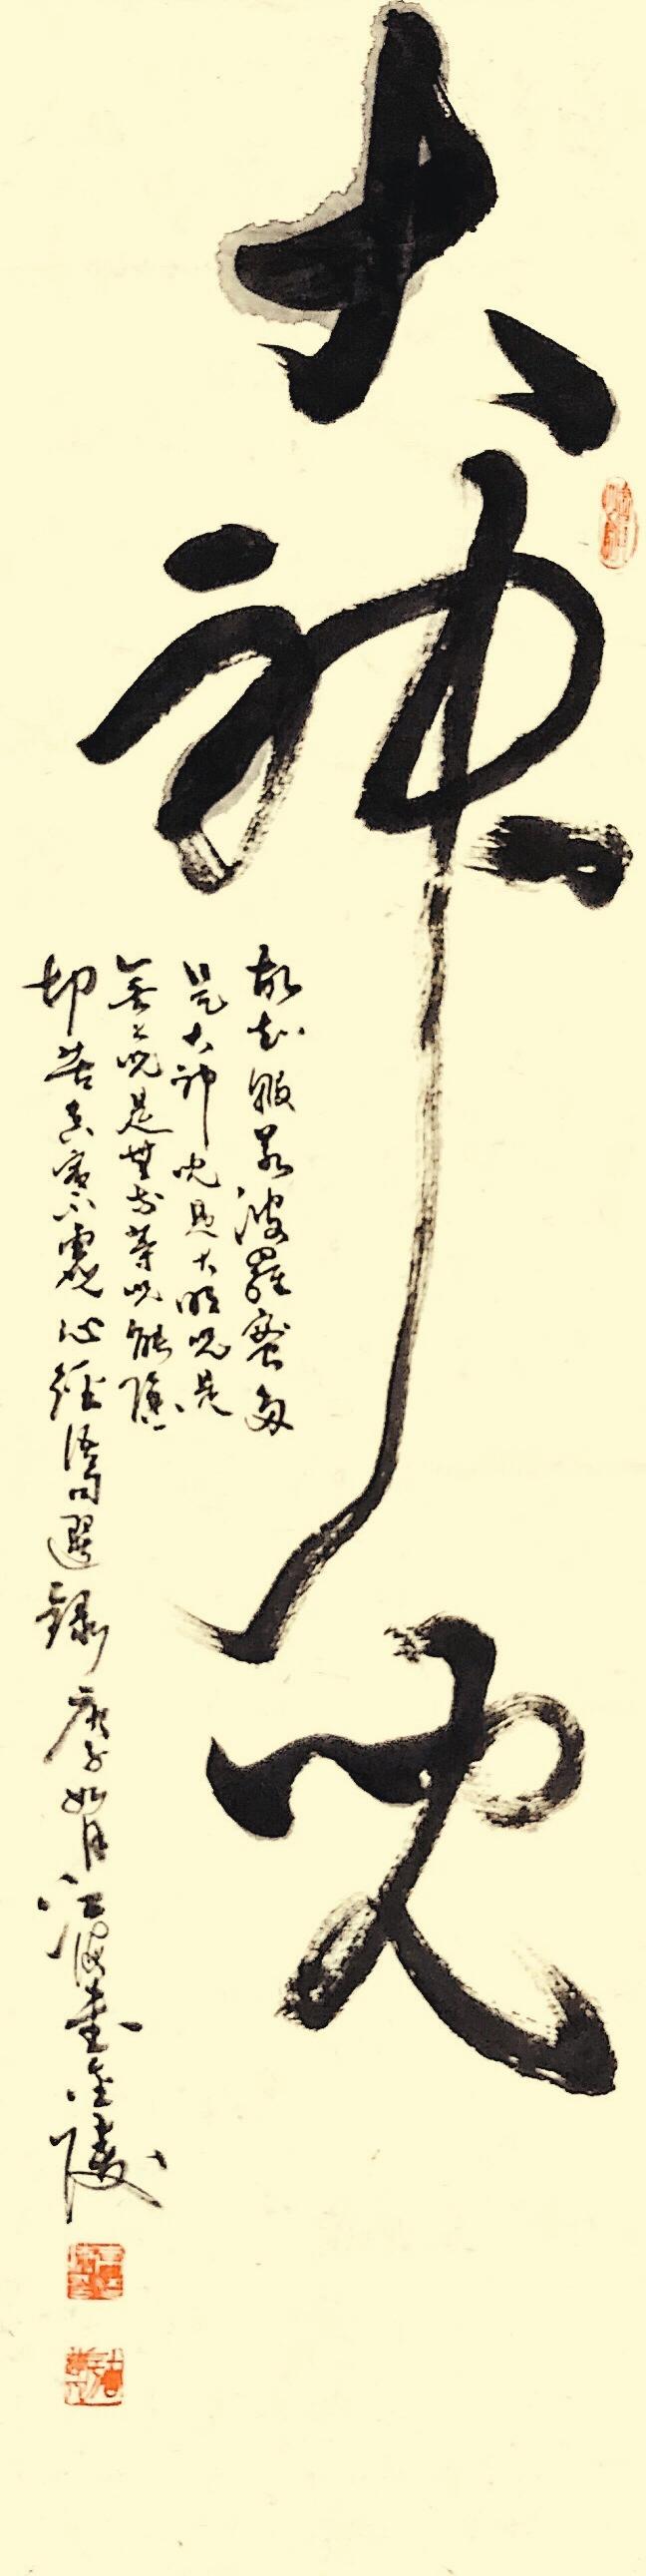 大神咒
故知般若波羅蜜多
是大神咒是大明咒是
無上咒是無等等咒能除一
切苦真實不虛心經語句選錄庚子如月江波書金陵